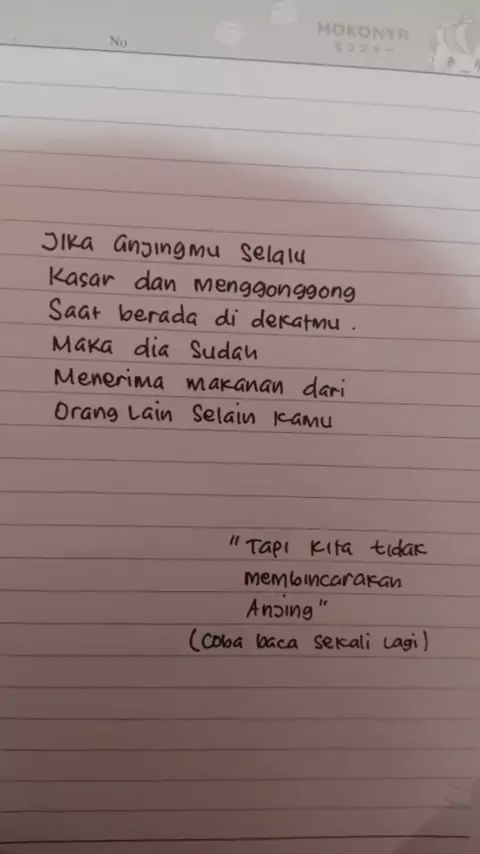 No
MOKONYA
モコニャー
Jika anjingmu selalu
kasar dan menggonggong
saat berada di dekatmu.
Maka dia sudah
Menerima makanan dari
orang lain selain kamu
"Tapi kita tidak
membincarakan
Anjing"
(coba baca sekali lagi)